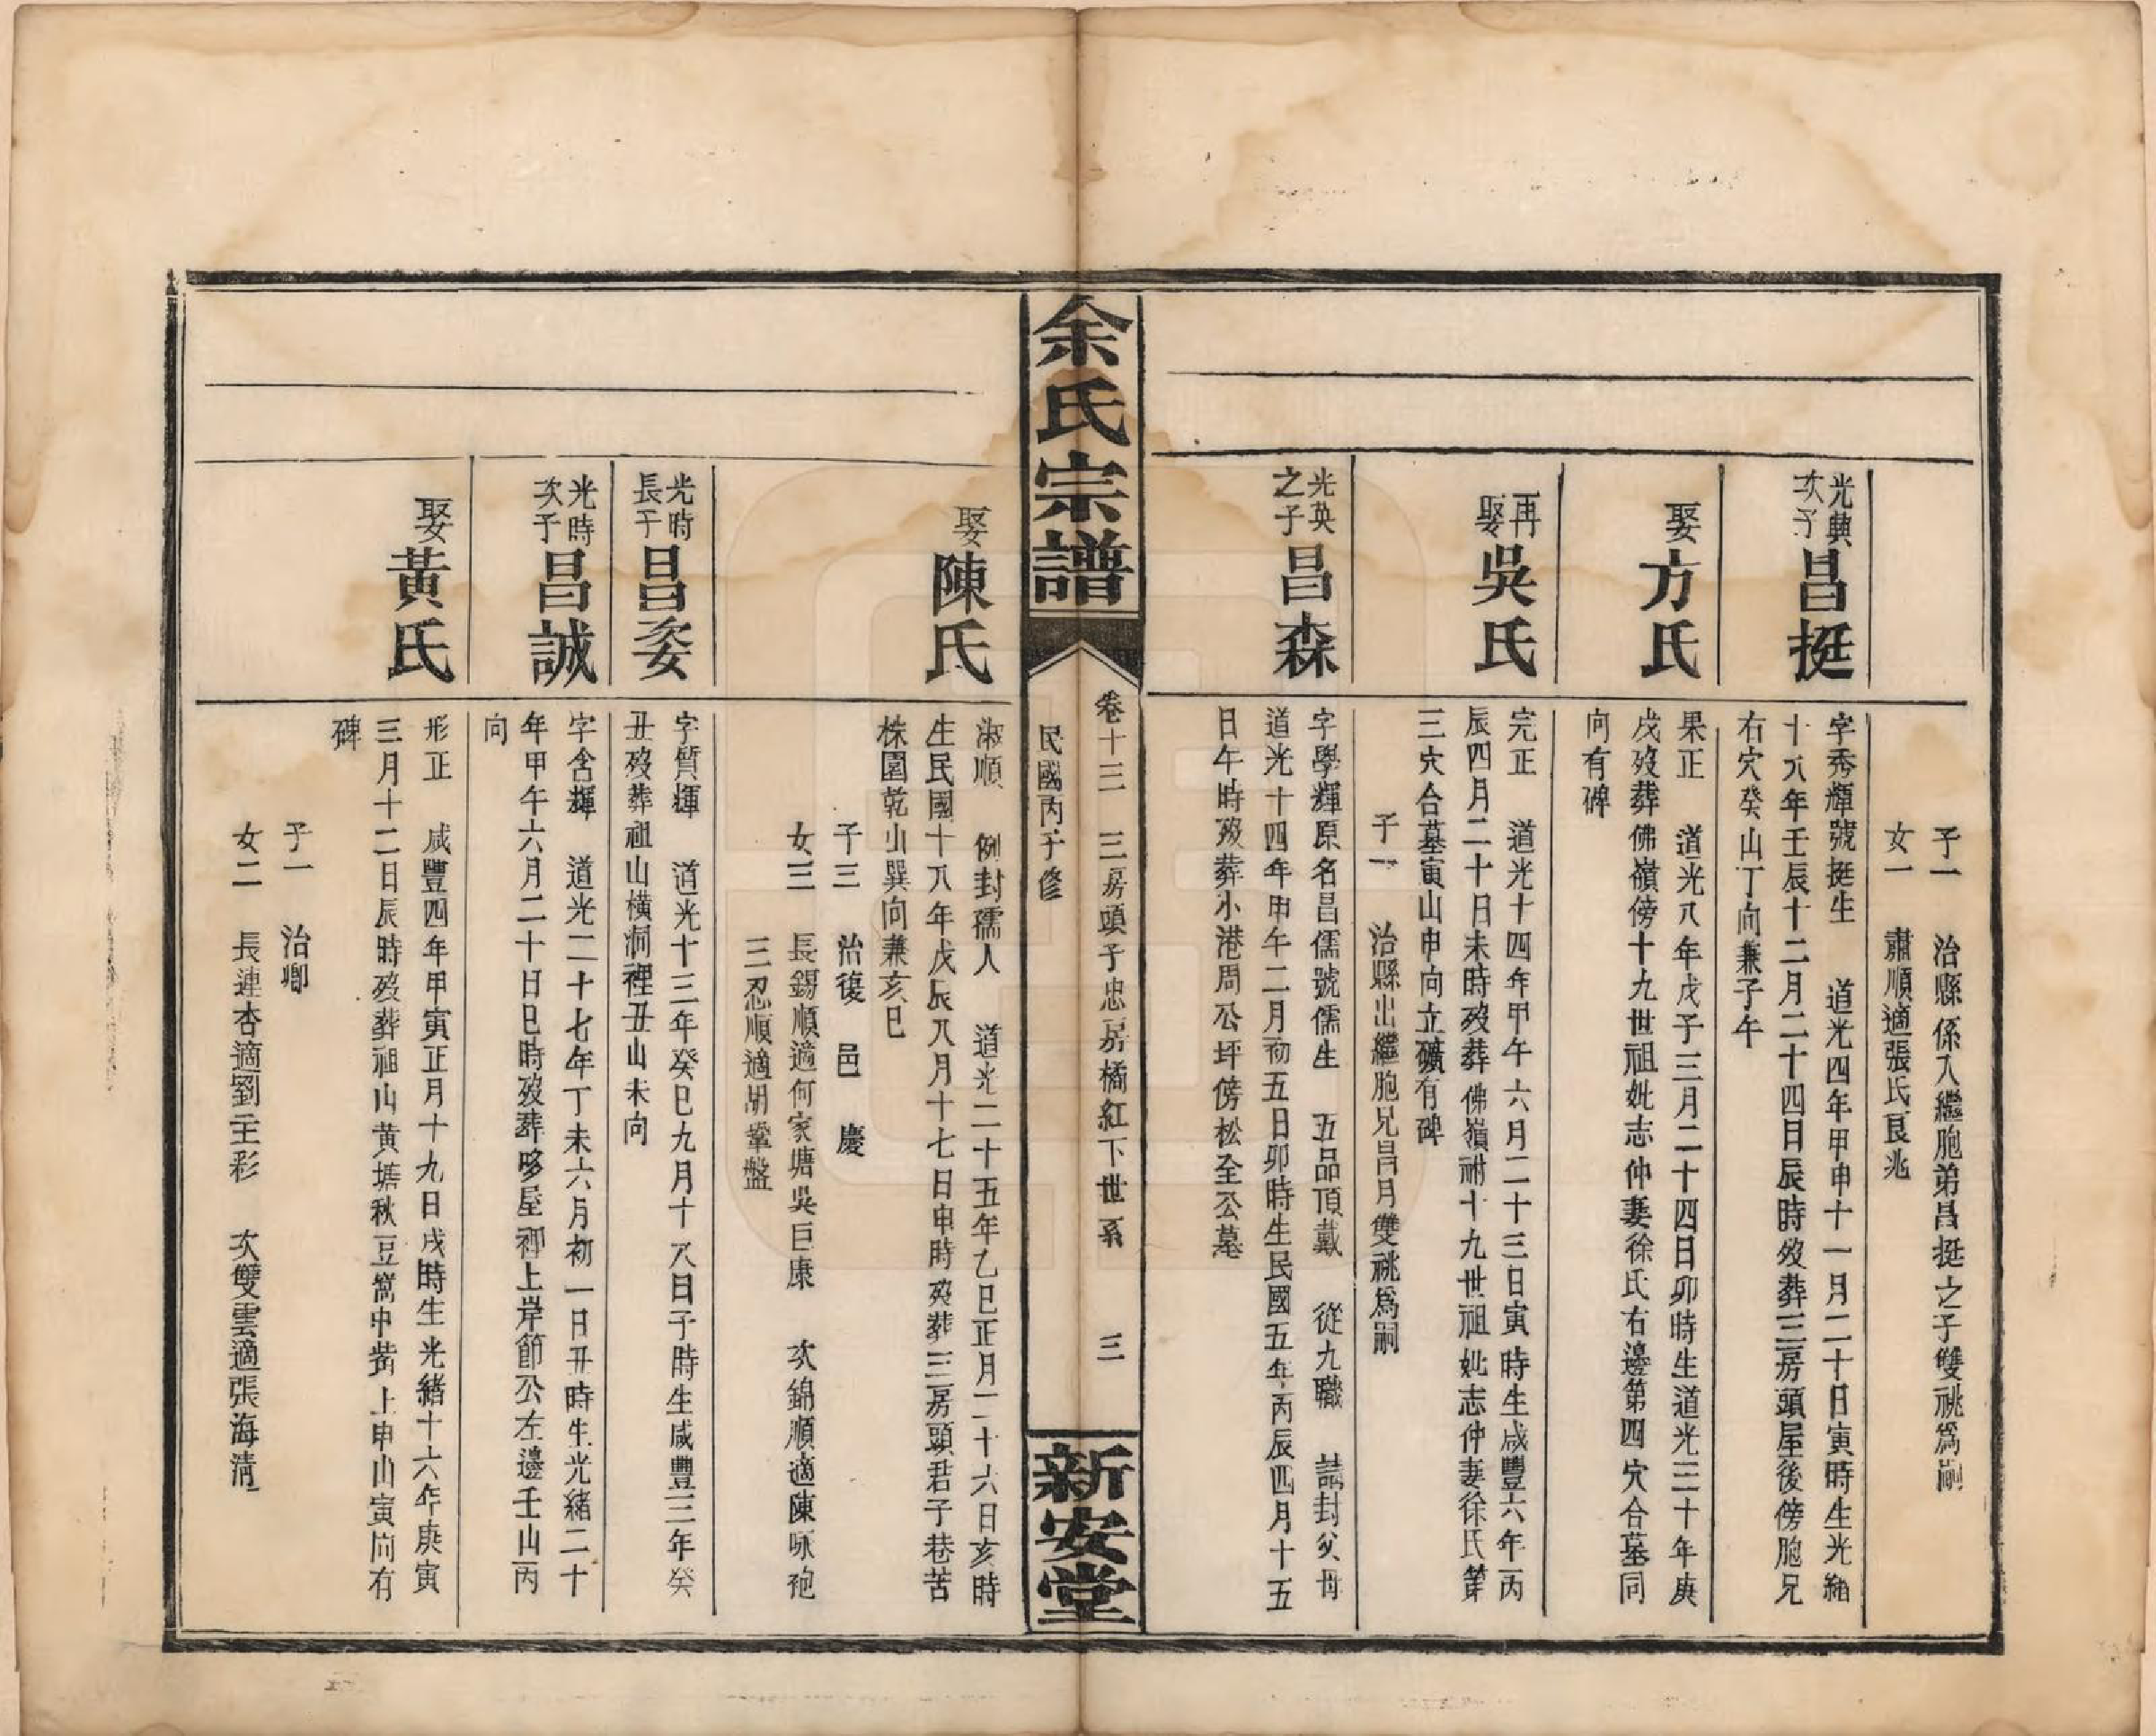 子一　治縣係入繼胞弟昌挺之子雙祧爲嗣
女一　肅順適張氏良兆
光典
次子
昌挺
字秀輝號挺生　道光四年甲申十一月二十日寅時生光緒
十八年壬辰十二月二十四日辰時歿葬三房頭屋後傍胞兄
右穴癸山丁向兼子午
娶
方氏
果正　道光八年戊子三月二十四日卯時生道光三十年庚
戌歿葬佛嶺傍十九世祖妣志仲妻徐氏右邊第四穴合墓同
向有碑
再
娶
吳氏
完正　道光十四年甲午六月二十三日寅時生咸豐六年丙
辰四月二十日未時歿葬佛嶺祔十九世祖妣志仲妻徐氏第
三穴合墓寅山申向立礦有碑
子一　治縣出繼胞兄昌月雙祧爲嗣
光英
之子
昌森
字學輝原名昌儒號儒生　五品頂戴　從九職　誥封父母
道光十四年甲午二月初五日卯時生民國五年丙辰四月十五
日午時歿葬小港周公坪傍松全公墓
余氏宗譜
卷十三　三房頭子忠房橘紅下世系　三
民國丙子修
新安堂
娶
陳氏
淑順　例封孺人　道光二十五年乙巳正月二十六日亥時
生民國十八年戊辰八月十七日申時歿葬三房頭君子巷苦
株園乾山巽向兼亥巳
子三　治復　邑　慶
女三　長錫順適何家塘吳巨康　次錦順適陳咏袍
三忍順適胡鞏盤
光時
長子
昌委
字質輝　道光十三年癸巳九月十八日子時生咸豐三年癸
丑歿葬祖山橫洞裡丑山未向
光時
次子
昌誠
字含輝　道光二十七年丁未六月初一日丑時生光緒二十
年甲午六月二十日巳時歿葬哆屋裡上岸節公左邊壬山丙
向
娶
黃氏
形正　咸豐四年甲寅正月十九日戌時生光緒十六年庚寅
三月十二日辰時歿葬祖山黃塘秋豆窩中嘴上申山寅向有
碑
子一　治卿
女二　長連杏適劉主彩　次雙雲適張海清